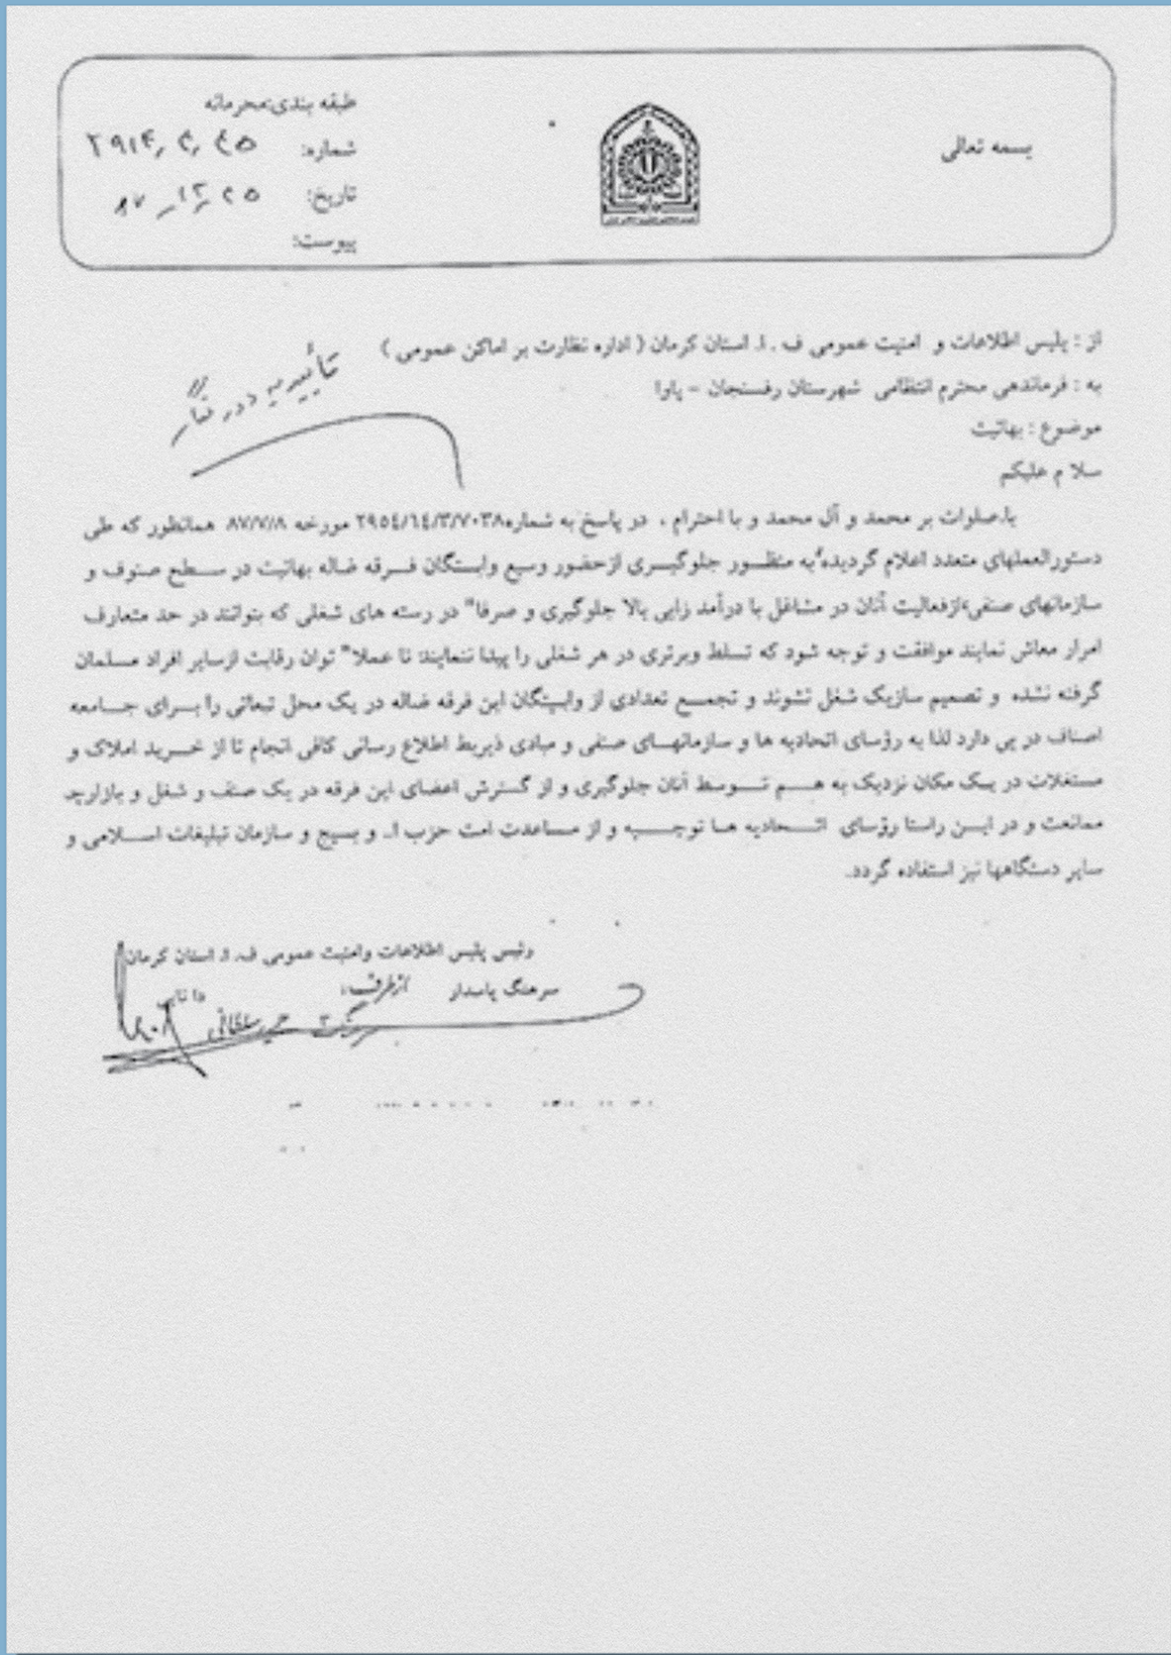 بسمه تعالی
طبقه بندی:محرمانه
شماره:
تاریخ:
پیوست:
از : پلیس اطلاعات و امنیت عمومی ف . ا. استان کرمان ( اداره نظارت بر اماکن عمومی )
به : فرماندهی محترم انتظامی شهرستان رفسنجان – پاوا
موضوع : بهائیت
سلا م علیکم
با صلوات بر محمد و آل محمد و با احترام ، در پاسخ به شماره ۲۹۵٤/۱٤/۳/۷۰۳۸ مورخه ۸۷/۷/۸ همانطور که طی
دستورالعملهای متعدد اعلام گردیده به منظــور جلوگیــری ازحضور وسیع وابستگان فــرقه ضاله بهائیت در ســطح صنوف و
سازمانهای صنفی ازفعالیت آنان در مشاغل با درآمد زایی بالا جلوگیری و صرفا" در رسته های شغلی که بتوانند در حد متعارف
امرار معاش نمایند موافقت و توجه شود که تسلط وبرتری در هر شغلی را پیدا ننمایند تا عملا" توان رقابت ازسایر افراد مسلمان
گرفته نشده و تصمیم سازیک شغل نشوند و تجمــع تعدادی از وابستگان این فرقه ضاله در یک محل تبعاتی را بــرای جــامعه
اصناف در پی دارد لذا به رؤسای اتحادیه ها و سازمانهــای صنفی و مبادی ذیربط اطلاع رسانی کافی انجام تا از خــرید املاک و
مستغلات در یــک مکان نزدیک به هــم تــوسط آنان جلوگیری و از گــترش اعضای این فرقه در یک صنف و شغل و بازارچه
ممانعت و در ایــن راستا رؤسای اتــحادیه هــا توجــیه و از مســاعدت امت حزب ا.. و بسیج و سازمان تبلیغات اســلامی و
سایر دستگاهها نیز استفاده گردد.
رئیس پلیس اطلاعات وامنیت عمومی ف. ا. استان کرمان
سرهنگ پاسدار ازطرف